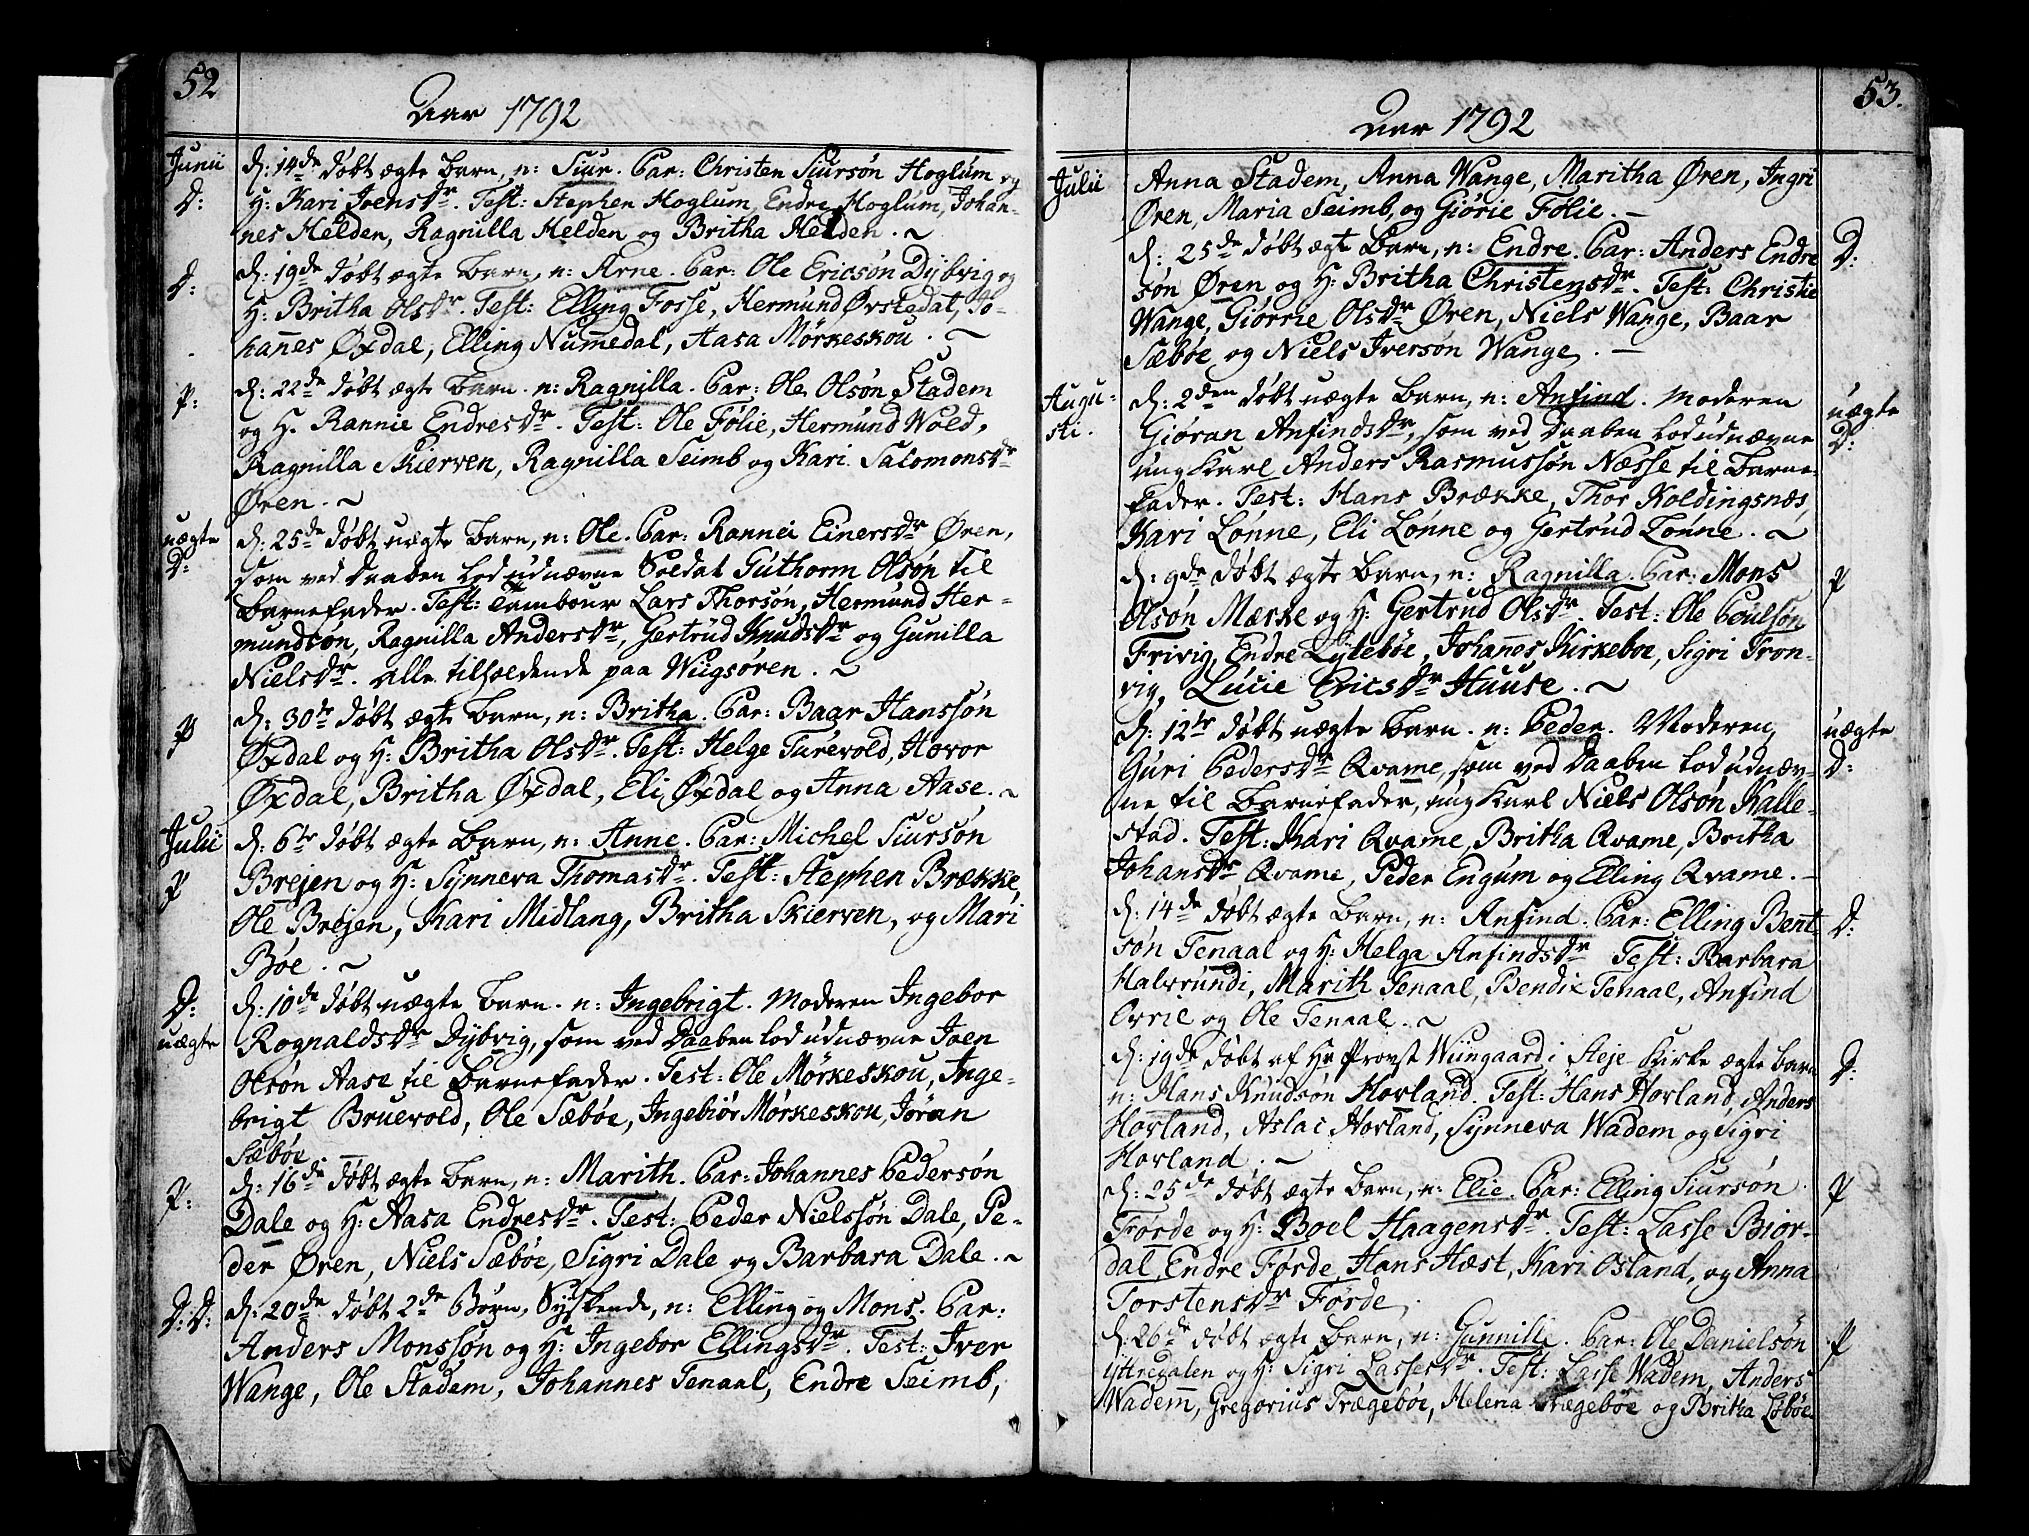 52
Aar 1792
Junii
D: 14de døbt ægte Barn, n: Siur. Par: Christen Siursøn Hoglum og
D:
H: Kari Joensdr. Test: Stephen Hoglum, Endre Hoglum, Johan-
nes Helden, Ragnilla Helden og Britha Helden.
D: 19de døbt ægte Barn, n: Arne. Par: Ole Ericsøn Dybvig og
D:
H: Britha Olsdr. Test: Elling Fosse, Hermund Øvstedat, Jo-
hannes Øxdal, Elling Nummedal, Aasa Mørkeskou.
D: 22de døbt ægte Barn. n: Ragnilla. Par: Ole Olsøn Stadem
P:
og H. Rannie Endresdr. Test: Ole Følie, Hermund Wold,
Ragnilla Skierven, Ragnilla Seimb og Kari Salomonsdr
Øren.
uægte
D: 25de døbt uægte Barn, n: Ole. Par: Rannei Einersdr Øren,
D:
som ved Daaben lod udnævne Soldat Guthorm Olsøn til
Barnefader. Test: Tambour Lars Thorsøn, Hermund Her-
mundsøn, Ragnilla Andersdr, Gertrud Knudsdr og Gunilla
Nielsdr. alle tilholdende paa Wiigsøren.
D: 30te døbt ægte Barn, n: Britha. Par: Baar Hanssøn
P
Øxdal og H: Britha Olsdr. Test: Helge Turevold, Hovor
Øxdal, Britha Øxdal, Eli Øxdal og Anna Aase.
Julii
D: 6te døbt ægte Barn, n: Anne. Par: Michel Siursøn
P
Brejen og H: Synneva Thomasdr. Test: Stephen Brække,
Ole Brejen, Kari Midlang, Britha Skierven, og Mari
Bøe.
D:
D: 10de døbt uægte Barn. n: Ingebrigt. Moderen Ingebor
uægte
Rognaldsdr Dybvig, som ved Daaben lod udnævne Joen
Olsøn Aase til Barnefader. Test: Ole Mørkeskou, Inge-
brigt Bruevold, Ole Sæbøe, Ingebiør Mørkeskou, Jøran
Sæbøe
D: 16de døbt ægte Barn, n: Marith. Par: Johannes Pedersøn
P:
Dale og H: Aasa Endresdr. Test: Peder Nielssøn Dale, Pe-
der Øren, Niels Sæbøe, Sigri Dale og Barbara Dale.
D:D:
D: 20de døbt 2de Børn, Sydskende, n: Elling og Mons. Par:
Anders Monssøn og H: Ingebor Ellingsdr. Test: Iver
Wange, Ole Stadem, Johannes Tenaal, Endre Seimb,
53.
Aar 1792
Julii
Anna Stadem, Anna Wange, Maritha Øren, Ingri
Øren, Maria Seimb, og Giørie Følie.
D: 25de døbt ægte Barn, n: Endre. Par: Anders Endre
D:
søn Øren og H: Britha Christensdr. Test: Christie
Wange, Giørrie Olsdr Øren, Niels Wange, Baar
Sæbøe og Niels Iversøn Wange.
Augu-
sti.
D: 2den døbt uægte Barn, n: Anfind. Moderen
uægte
D:
Giøran Anfindsdr, som ved Daaben lod udnævne
ung Karl Anders Rasmussøn Næsse til Barne-
fader. Test: Hans Brække, Thor Koldingsnæs,
Kari Lønne, Eli Lønne og Gertrud Lønne.
D: 9de døbt ægte Barn, n: Ragnilla. Par: Mons
P
Olsøn Mærke og H: Gertrud Olsdr. Test: Ole Poulsøn
Frivig, Endre Lytebøe, Johannes Kirkebøe, Sigri Fron-
vig, Lucie Ericsdr Hauuse.
D: 12te døbt uægte Barn. n: Peder. Moderen,
uægte
D:
Guri Pedersdr Qvame, som ved Daaben lod udnæv-
ne til Barnefader, ung Karl Niels Olsøn Kalle-
stad. Test: Kari Qvame, Britha Qvame, Britha
Johansdr Qvame, Peder Engum og Elling Qvame.
D: 14de døbt ægte Barn, n: Anfind. Par: Elling Bent-
D:
søn Tenaal og H: Helga Anfindsdr Test: Barbara
Halvrundi, Marith Tenaal, Bendix Tenaal, Anfind
Orril og Ole Tenaal.
D: 19de døbt af Hr Provst Wiingaard i Steje Kirke ægte Barn
D:
n: Hans Knudsøn Hovland. Test: Hans Hovland, Anders
Hovland, Aslac Hovland, Synneva Wadem og Sigri
Hovland.
D: 25de døbt ægte Barn, n: Elie. Par: Elling Siursøn
P
Førde og H: Boel Haagensdr. Test: Lasse Bior-
dal, Endre Førde, Hans Hæst, Kari Osland, og Anna
Torstensdr Førde.
D: 26de døbt ægte Barn, n: Gunnille. Par: Ole Danielsøn
P
Yttredalen og H: Sigri Lassesdr. Test: Lasse Wadem, Anders
Wadem, Gregorius Trægebøe, Helena Trægebøe og BrithaLøbøe